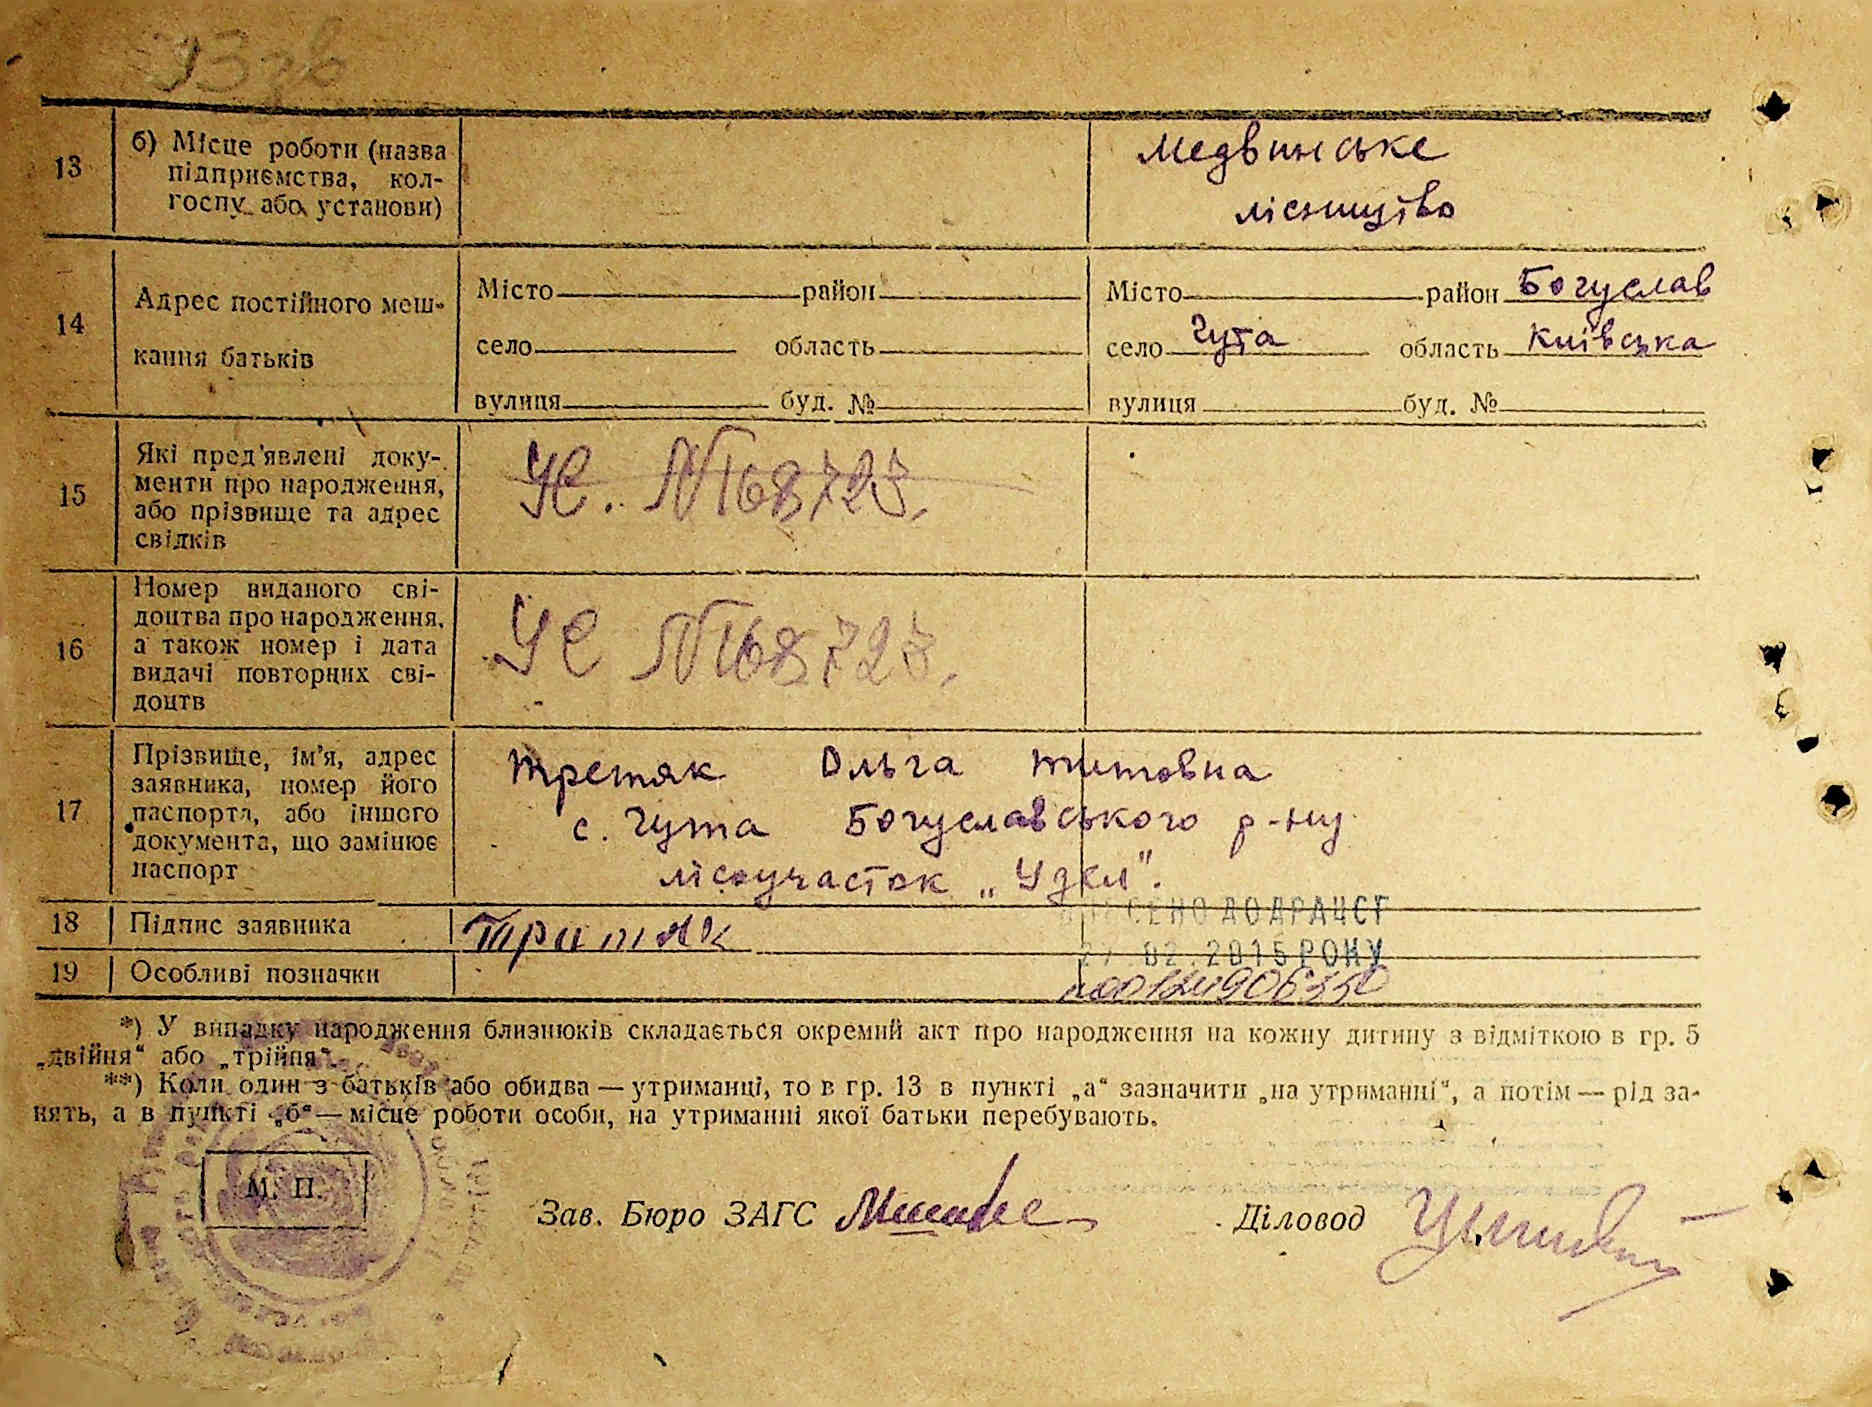 13
б) Місце роботи (назва
підприємства, кол-
госпу або установи)
Медвинське
лісництво
14
Адрес постійного меш-
кання батьків
Місто район
село область
вулиця буд. №
Місто район Богуслав
село Гута область Київська
вулиця буд. №
15
Які пред'явлені доку-
менти про народження,
або прізвище та адрес
свідків
УС. № 168723.
16
Номер виданого сві-
доцтва про народження,
а також номер і дата
видачі повторних сві-
доцтв
УС № 168723.
17
Прізвище, ім'я, адрес
заявника, номер його
паспорта, або іншого
документа, що замінює
паспорт
Третяк Ольга Титовна
с. Гута Богуславського р-ну
лісоучасток
18 Підпис заявника
Тритяк
ДО ДРАЦСГ
27.02.2015 РОКУ
19 Особливі позначки
*) У випадку народження близнюків складається окремий акт про народження на кожну дитину з відміткою в гр. 5
„двійня“ або „трійня“.
**) Коли один з батьків або обидва — утриманці, то в гр. 13 в пункті „а“ зазначити „на утриманні“, а потім — рід за-
нять, а в пункті „б“ — місце роботи особи, на утриманні якої батьки перебувають.
М. П.
Зав. Бюро ЗАГС
Діловод